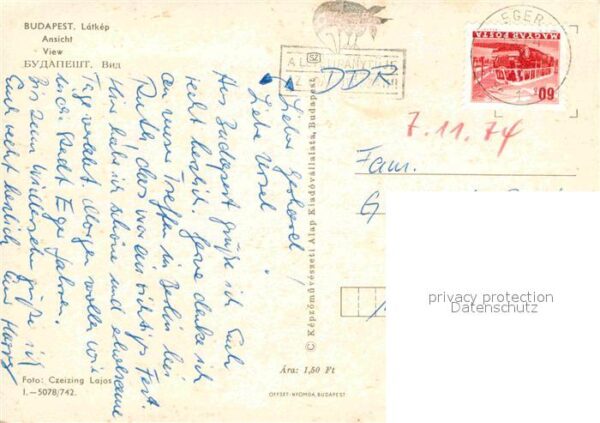 BUDAPEST. Látkép
Ansicht
View
БУДАПЕШТ. Вид
EGER
MAGYAR POSTA
60f
DDR
7.11.74
Fam.
G
Liebe Ursel
Liebe Gerhard!
Aus Budapest grüße ich Euch
recht herzlich. Gerne denke ich
an unser Treffen in Berlin bei
das war ein richtiges Fest.
Hier habe ich schöne und erholsame
Tage verlebt. Morgen wollen wir
in die Stadt Eger fahren.
Bis zum Wiedersehen grüße ich
Euch recht herzlich Eure
© Képzőművészeti Alap Kiadóvállalata, Budapest
Foto: Czeizing Lajos
I.—5078/742.
Ára: 1,50 Ft
OFFSET-NYOMDA, BUDAPEST
privacy protection
Datenschutz